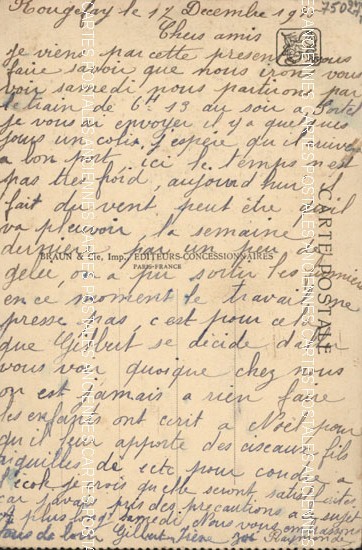 Rougemy le 17 Decembre 19
75027
Chers amis
je viens par cette presente vous
faire savoir que nous iron vous
voir samedi nous partiron par
le train de 6h 13 du soir a
je vous ai envoyer il y a quelques
jours un colis j'espère qu'il arrive
a bon port, ici le temps n'est
pas tres froid, aujourd hui il
fait du vent peut étre qu'il
va pleuvoir, la semaine
derniere par un peu
BRAUN & Cie, Imp., EDITEURS-CONCESSIONNAIRES
PARIS-FRANCE
gelée, on a pu sortir les
en ce moment le travail
presse pas, c'est pour cela
que Gilbert se décide d'aller
vous voir quoique chez nous
on est jamais a rien faire
les enfants ont ecrit a Noël pour
qu'il leur apporte des ciseaux, fils
aiguilles, de ectc pour coudre a
l'ecole je crois qu'elle seront satisfaites
car j'avais pris des precautions a ce sujet
A plus long samedi Nous vous embrassons
tous de loin Gilbert Irène Raymonde
CARTE POSTALE
CARTES POSTALES ANCIENNES